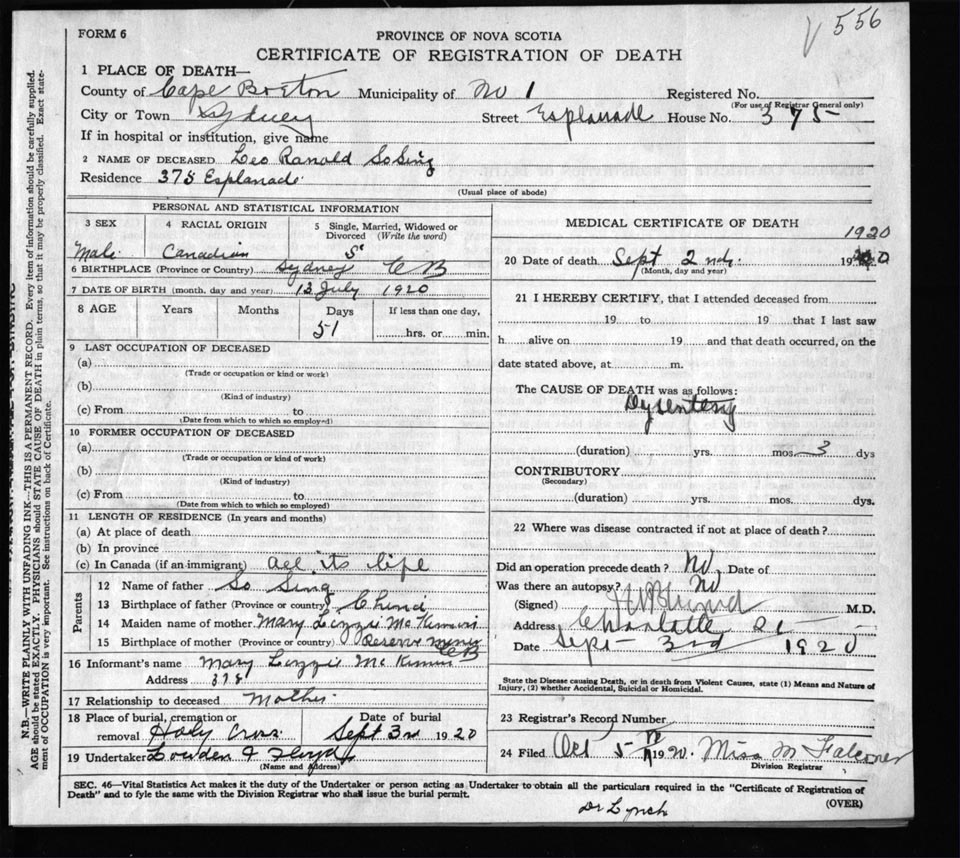 556
FORM 6
PROVINCE OF NOVA SCOTIA
CERTIFICATE OF REGISTRATION OF DEATH
1 PLACE OF DEATH—
County of Cape Breton Municipality of No 1 Registered No.
(For use of Registrar General only)
City or Town Sydney Street Esplanade House No. 375
If in hospital or institution, give name
2 NAME OF DECEASED Leo Ranald So Sing
Residence 375 Esplanade
(Usual place of abode)
PERSONAL AND STATISTICAL INFORMATION
3 SEX 4 RACIAL ORIGIN 5 Single, Married, Widowed or
Divorced (Write the word)
Male Canadian S
6 BIRTHPLACE (Province or Country) Sydney C B
7 DATE OF BIRTH (month, day and year) 13 July 1920
8 AGE Years Months Days If less than one day,
51 hrs. or min.
9 LAST OCCUPATION OF DECEASED
(a)
(Trade or occupation or kind or work)
(b)
(Kind of industry)
(c) From to
(Date from which to which so employed)
10 FORMER OCCUPATION OF DECEASED
(a)
(Trade or occupation or kind of work)
(b)
(Kind of industry)
(c) From to
(Date from which to which so employed)
11 LENGTH OF RESIDENCE (In years and months)
(a) At place of death
(b) In province
(c) In Canada (if an immigrant) all its life
Parents
12 Name of father So Sing
13 Birthplace of father (Province or country) China
14 Maiden name of mother Mary Lizzie
15 Birthplace of mother (Province or country) Reserve Mines
CB
16 Informant's name Mary Lizzie
Address 375
17 Relationship to deceased Mother
18 Place of burial, cremation or Date of burial
removal Holy Cross Sept 3rd 1920
19 Undertaker Lowden & Floyd
(Name and Address)
MEDICAL CERTIFICATE OF DEATH
1920
20 Date of death Sept 2nd 19 0
(Month, day and year)
21 I HEREBY CERTIFY, that I attended deceased from
19 to 19 that I last saw
h alive on 19 and that death occurred, on the
date stated above, at m.
The CAUSE OF DEATH was as follows:
Dysentery
(duration) yrs. mos. 3 dys
CONTRIBUTORY
(Secondary)
(duration) yrs. mos. dys.
22 Where was disease contracted if not at place of death?
Did an operation precede death? No Date of
Was there an autopsy? No
(Signed) M.D.
Address Charlotte St
Date Sept 3rd 1920
State the Disease causing Death, or in death from Violent Causes, state (1) Means and Nature of
Injury, (2) whether Accidental, Suicidal or Homicidal.
23 Registrar's Record Number
24 Filed Oct 5 1920. Miss M Falconer
Division Registrar
SEC. 46—Vital Statistics Act makes it the duty of the Undertaker or person acting as Undertaker to obtain all the particulars required in the "Certificate of Registration of
Death" and to fyle the same with the Division Registrar who shall issue the burial permit.
(OVER)
Dr Lynch
N.B.—WRITE PLAINLY WITH UNFADING INK—THIS IS A PERMANENT RECORD. Every item of information should be carefully supplied.
AGE should be stated EXACTLY. PHYSICIANS should STATE CAUSE OF DEATH in plain terms, so that it may be properly classified. Exact state-
ment of OCCUPATION is very important. See instructions on back of Certificate.